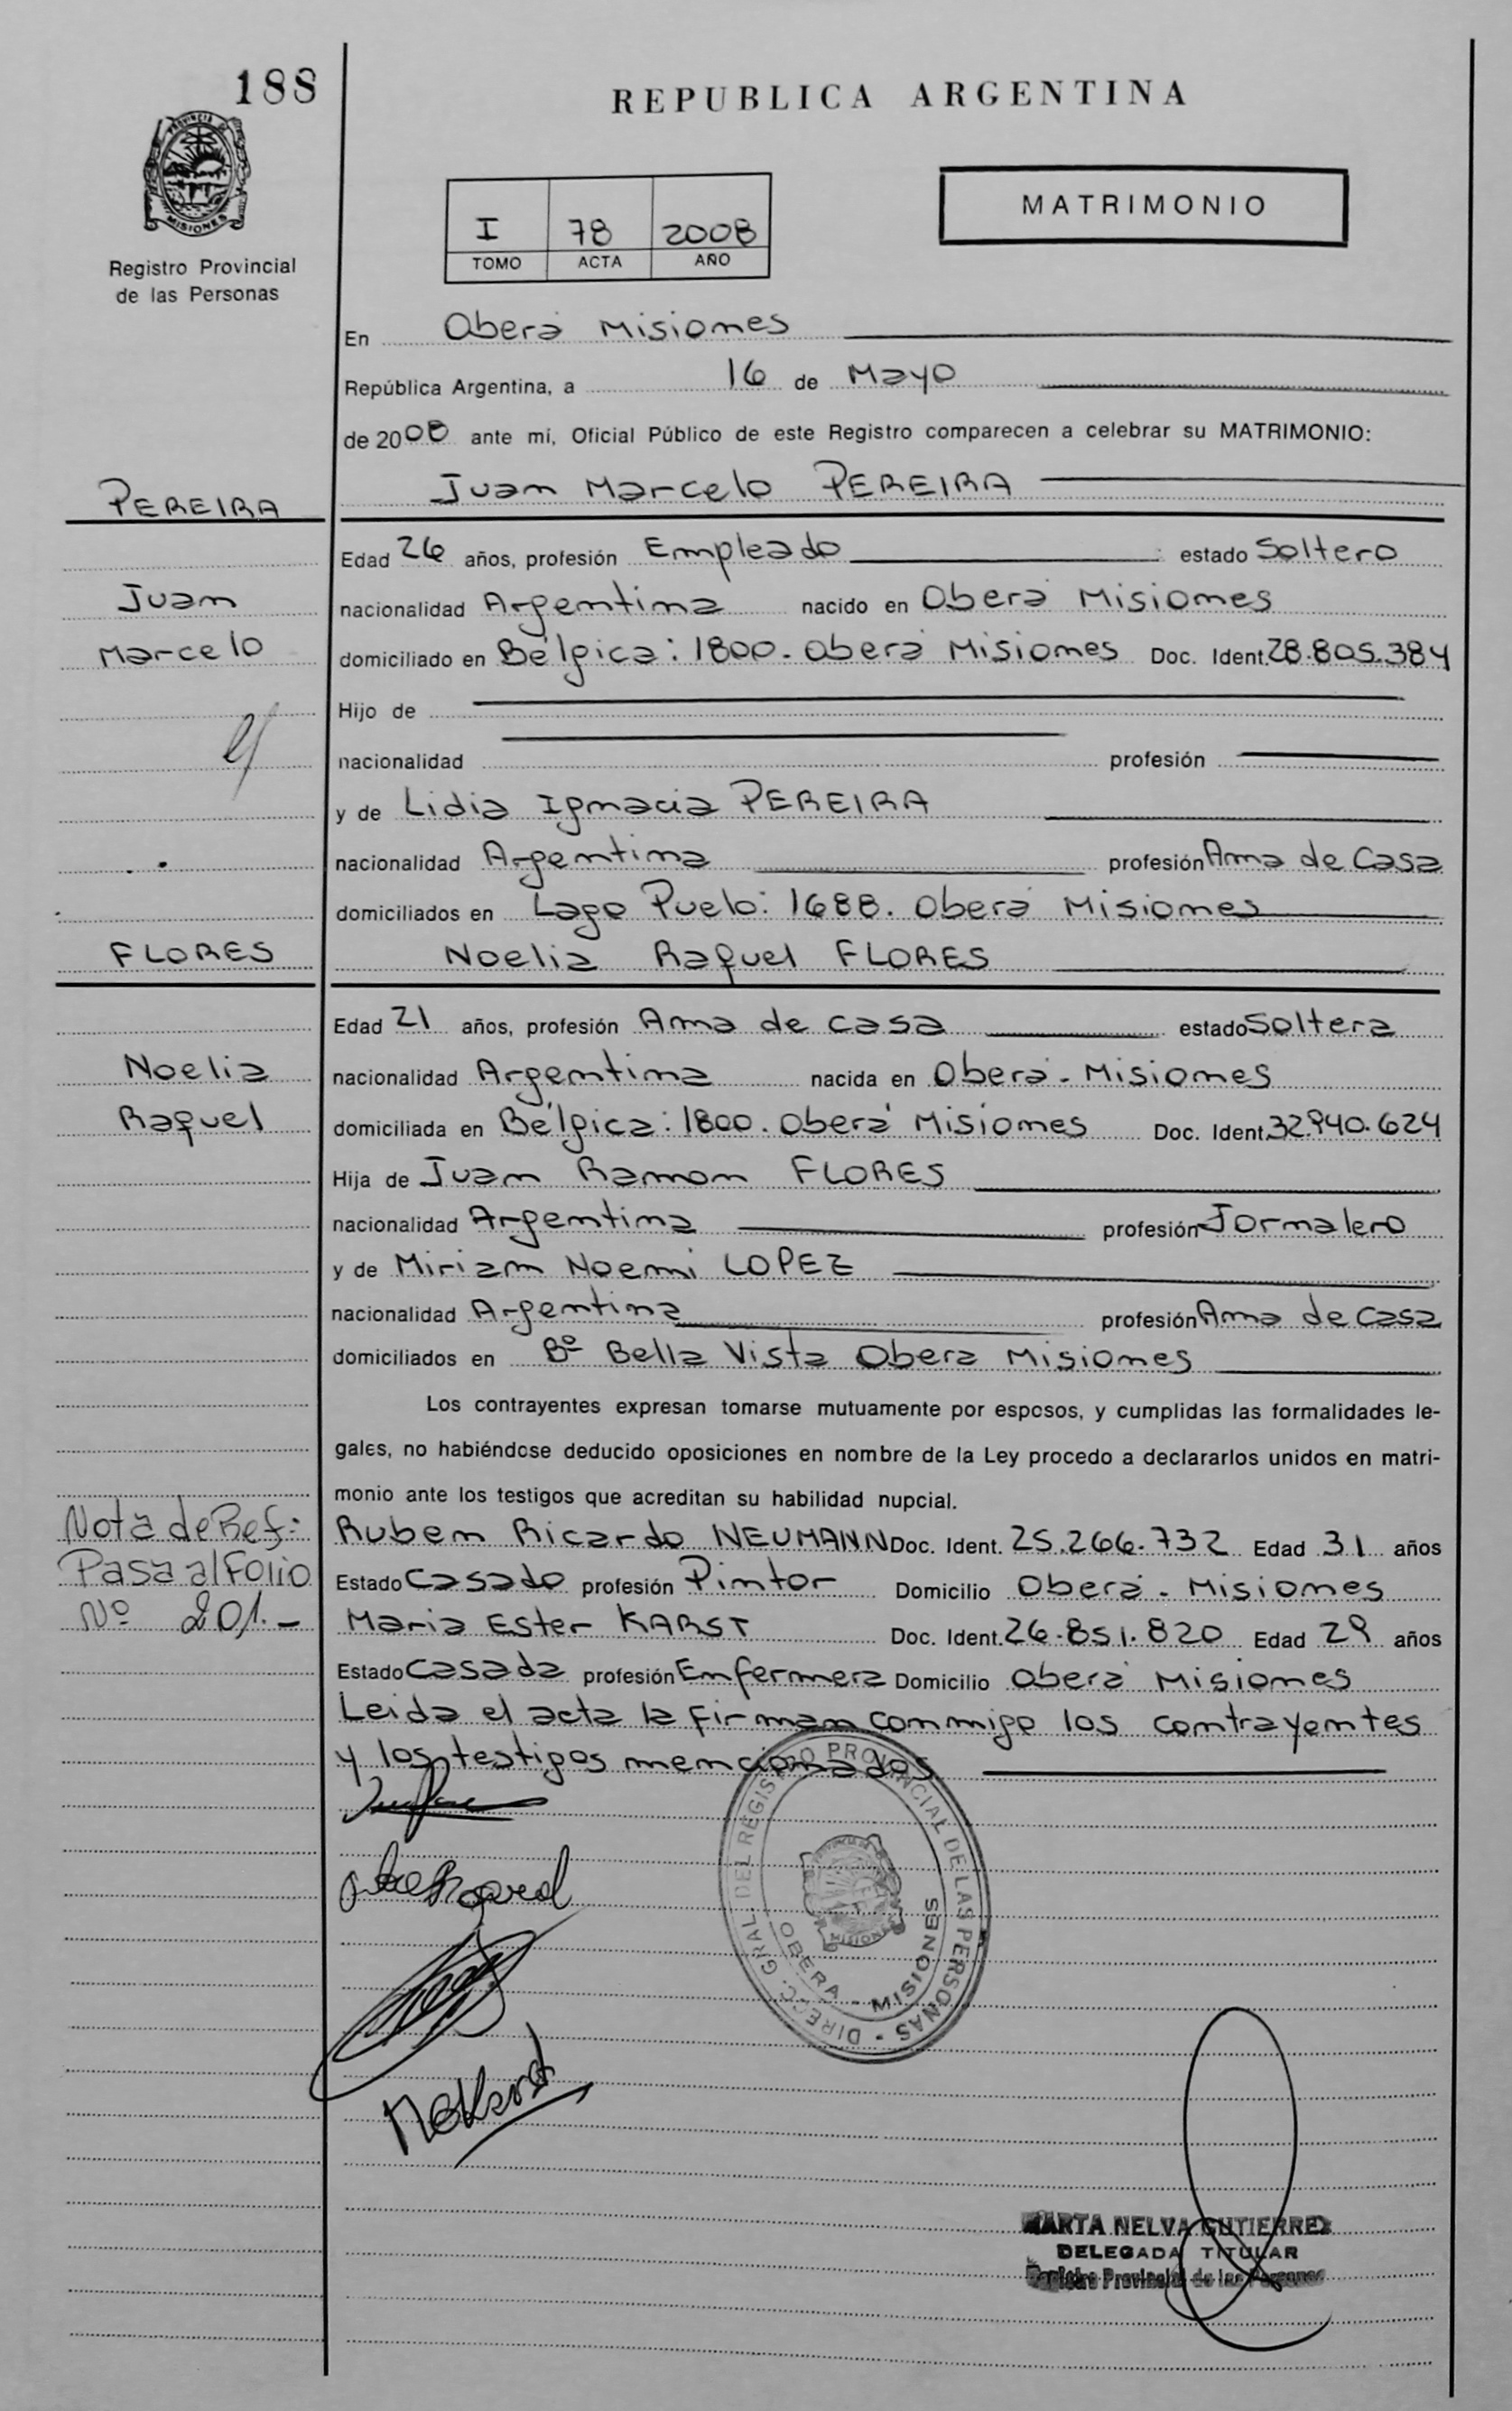 188
REPUBLICA ARGENTINA
PROVINCIA DE
MISIONES
Registro Provincial
de las Personas
I 78 2008
TOMO ACTA AÑO
MATRIMONIO
En Oberá Misiones
República Argentina, a 16 de Mayo
de 2008 ante mí, Oficial Público de este Registro comparecen a celebrar su MATRIMONIO:
PEREIRA
Juan Marcelo PEREIRA
Edad 26 años, profesión Empleado estado Soltero
Juan
nacionalidad Argentina nacido en Oberá Misiones
Marcelo
domiciliado en Bélgica: 1800. Oberá Misiones Doc. Ident. 28.805.384
Hijo de
y
nacionalidad profesión
y de Lidia Ignacia PEREIRA
nacionalidad Argentina profesión Ama de Casa
domiciliados en Lago Puelo: 1688. Oberá Misiones
FLORES
Noelia Raquel FLORES
Edad 21 años, profesión Ama de casa estado Soltera
Noelia
nacionalidad Argentina nacida en Oberá - Misiones
Raquel
domiciliada en Bélgica: 1800. Oberá Misiones Doc. Ident. 32.940.624
Hija de Juan Ramon FLORES
nacionalidad Argentina profesión Jornalero
y de Miriam Noemi LOPEZ
nacionalidad Argentina profesión Ama de Casa
domiciliados en Bº Bella Vista Obera Misiones
Los contrayentes expresan tomarse mutuamente por esposos, y cumplidas las formalidades le-
gales, no habiéndose deducido oposiciones en nombre de la Ley procedo a declararlos unidos en matri-
monio ante los testigos que acreditan su habilidad nupcial.
Nota de Ref:
Pasa al Folio
Nº 201.-
Ruben Ricardo NEUMANN Doc. Ident. 25.266.732 Edad 31 años
Estado Casado profesión Pintor Domicilio Oberá - Misiones
Maria Ester KARST Doc. Ident. 26.851.820 Edad 29 años
Estado Casada profesión Enfermera Domicilio Oberá Misiones
Leida el acta la firman conmigo los contrayentes
y los testigos mencionados
DIRECC. GRAL. DEL REGISTRO PROVINCIAL DE LAS PERSONAS -
OBERA - MISIONES
MARTA NELVA GUTIERREZ
DELEGADA TITULAR
Registro Provincial de las Personas